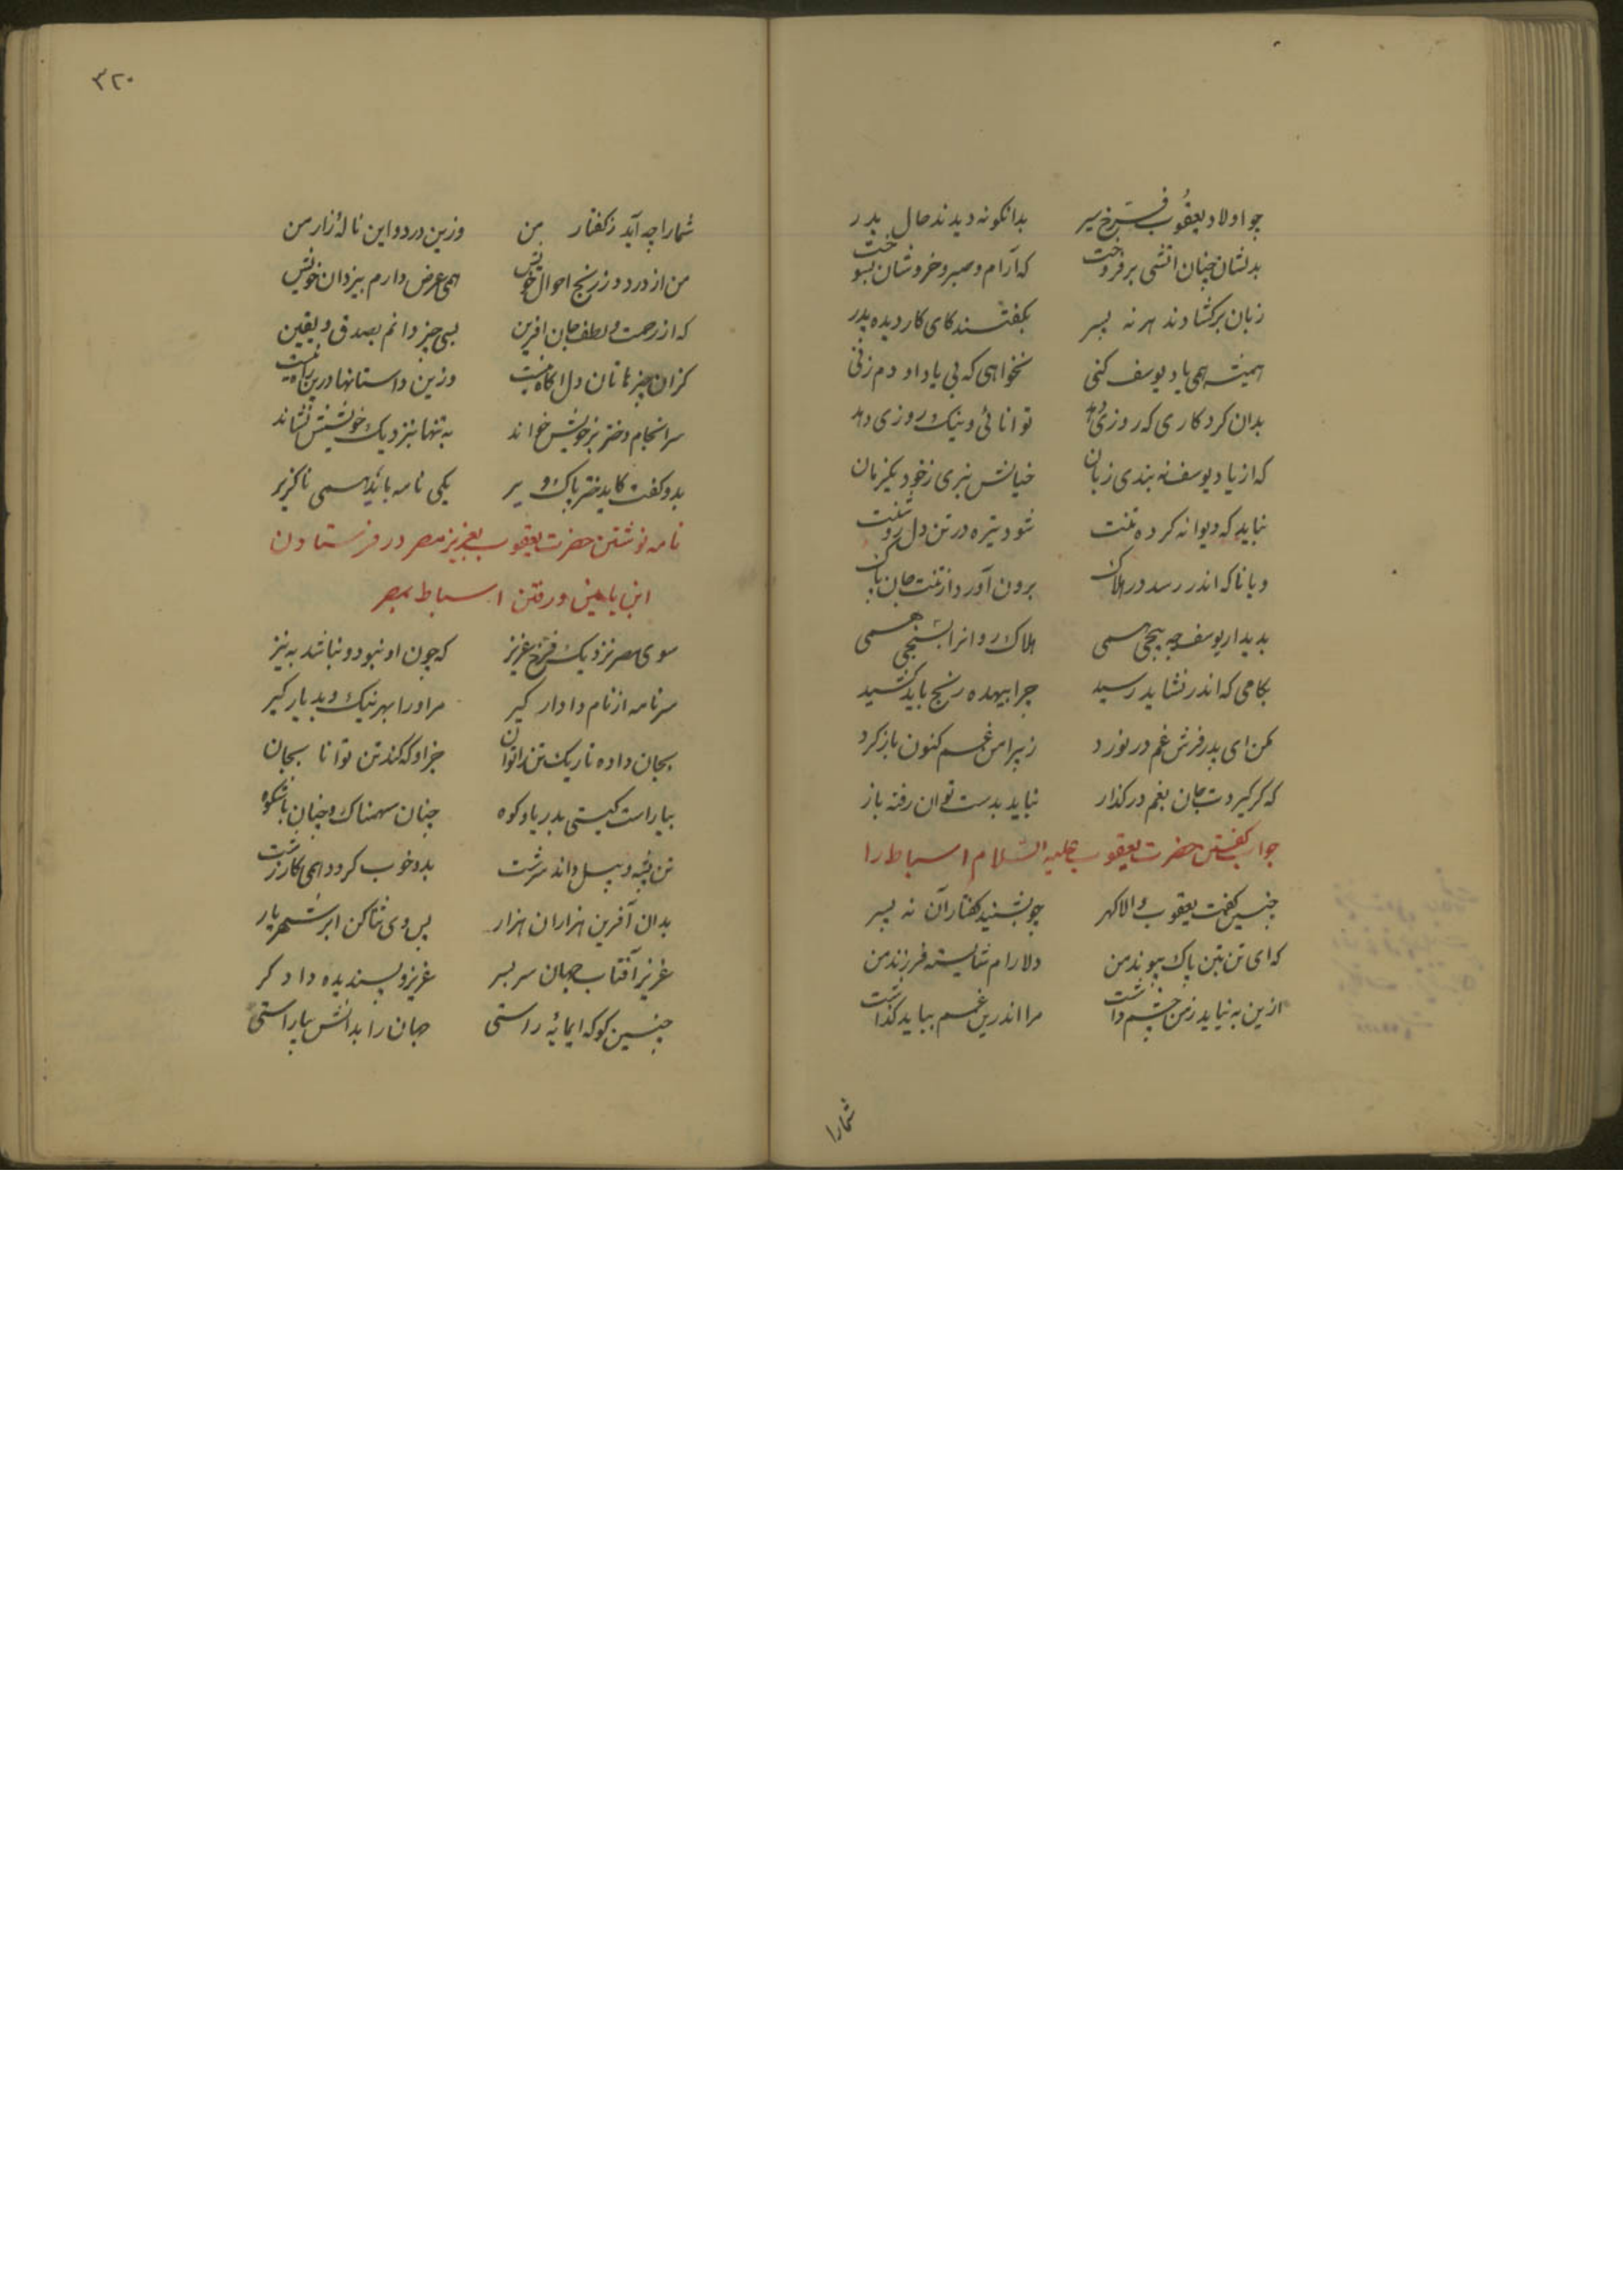 چو اولاد یعقوب فرخ سیر بدانکونه دیدند حال پدر
بدلشان چنان اتشی برفروخت که آرام و صبر و خروشان بسوخت
زبان برکشادند هر نه پسر بکفتند کای کار دیده پدر
همیشه همی یاد یوسف کنی نخواهی که بی یاد او دم زنی
بدان کردکاری که روزی دهد توانائی و نیک روزی دهد
که از یاد یوسف نه بندی زبان خیالش نبری زخود یکزمان
نباید که دیوانه کرده تنت شود تیره در تن دل روشنت
و یا ناکه اندر رسد در هلاک برون آورد از تنت جان پاک
بدیدار یوسف چه پیچی همی هلاک روانرا بسنجی همی
بکامی که اندر نشاید رسید چرا بیهده رنج باید کشید
مکن ای پدر فرش غم در نورد ز پیرامن غم کنون باز کرد
که کر کیردت جان بغم در کذار نیاید بدست توان رفته باز
جواب کفتن حضرت یعقوب علیه السلام اسباط را
چنین کفت یعقوب والاکهر چو بشنید کفتار آن نه پسر
که ای تن بتن پاک پیوند من دلارام شایسته فرزند من
ازین به نیاید زمن چشم داشت مرا اندرین غم بباید کذاشت
شمارا
۳۲۰
شمارا چه آید زکفتار من وزین درد و این نالهٔ زار من
من از درد وز رنج احوال خویش همی عرض دارم بیزدان خویش
که از رحمت و لطف جان افرین بسی چیز دانم بصدق و یقین
کزان چیزها تان دل اکاه نیست وزین داستانها درین راه نیست
سرانجام دختر بر خویش خواند به تنها بنزدیک خویشتنش نشاند
بدو کفت کاید ختر پاک ویر یکی نامه باید همی ناکزیر
نامه نوشتن حضرت یعقوب بعزیز مصر در فرستادن
ابن یامین و رفتن اسباط بمصر
سوی مصر نزدیک فرخ عزیز که چون او نبود و نباشد به نیز
سر نامه از نام دادار کیر مر او را بهر نیک و بد یار کیر
بجان داده تاریک تن را توان جز او که کند تن توانا بجان
بیاراست کیتی بدریا و کوه چنان سهمناک و چنان با شکوه
تن پشه و پیل داند سرشت بدو خوب کردد همی کار زشت
بدان آفرین هزاران هزار پس وی ثنا کن ابر شهریار
عزیز آفتاب جهان سر بسر عزیز و پسندیده دادکر
چنین کو که ایمایهٔ راستی جهان را بدانش بیاراستی